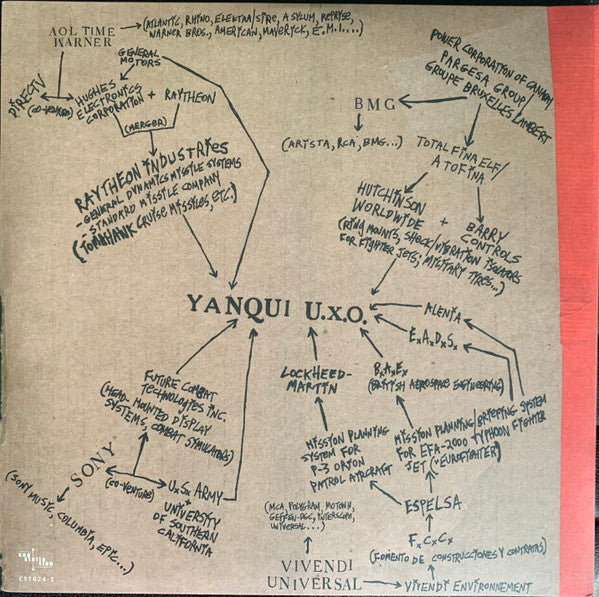 AOL TIME
WARNER
(ATLANTIC, RHINO, ELEKTRA/SIRE, ASYLUM, REPRISE,
WARNER BROS., AMERICAN, MAVERICK, E.M.I....)
GENERAL
MOTORS
DIRECTV
(CO-VENTURE)
HUGHES
ELECTRONICS
CORPORATION
+ RAYTHEON
(MERGER)
RAYTHEON INDUSTRIES
- GENERAL DYNAMICS MISSILE SYSTEMS
- STANDARD MISSILE COMPANY
(TOMAHAWK CRUISE MISSILES, ETC.)
POWER CORPORATION OF CANADA/
PARGESA GROUP/
GROUPE BRUXELLES LAMBERT
BMG
(ARISTA, RCA, BMG...)
TOTALFINAELF/
ATOFINA
HUTCHINSON
WORLDWIDE
+ BARRY
CONTROLS
(RING MOUNTS, SHOCK/VIBRATION ISOLATORS
FOR FIGHTER JETS; MILITARY TIRES...)
YANQUI U.X.O.
ALENIA
E.A.D.S.
LOCKHEED-
MARTIN
B.A.E.
(BRITISH AEROSPACE ENGINEERING)
FUTURE COMBAT
TECHNOLOGIES INC.
(HEAD-MOUNTED DISPLAY
SYSTEMS, COMBAT SIMULATORS)
MISSION PLANNING
SYSTEM FOR
P-3 ORION
PATROL AIRCRAFT
MISSION PLANNING/BRIEFING SYSTEM
FOR EFA-2000 TYPHOON FIGHTER
JET ("EUROFIGHTER")
SONY
(CO-VENTURE)
U.S. ARMY
+
UNIVERSITY
OF SOUTHERN
CALIFORNIA
(SONY MUSIC, COLUMBIA, EPIC...)
ESPELSA
F.C.C.
(FOMENTO DE CONSTRUCCIONES Y CONTRATAS)
(MCA, POLYGRAM, MOTOWN,
GEFFEN-DGC, INTERSCOPE,
UNIVERSAL...)
VIVENDI
UNIVERSAL
VIVENDI ENVIRONNEMENT
con
stella
tion
CST024-1